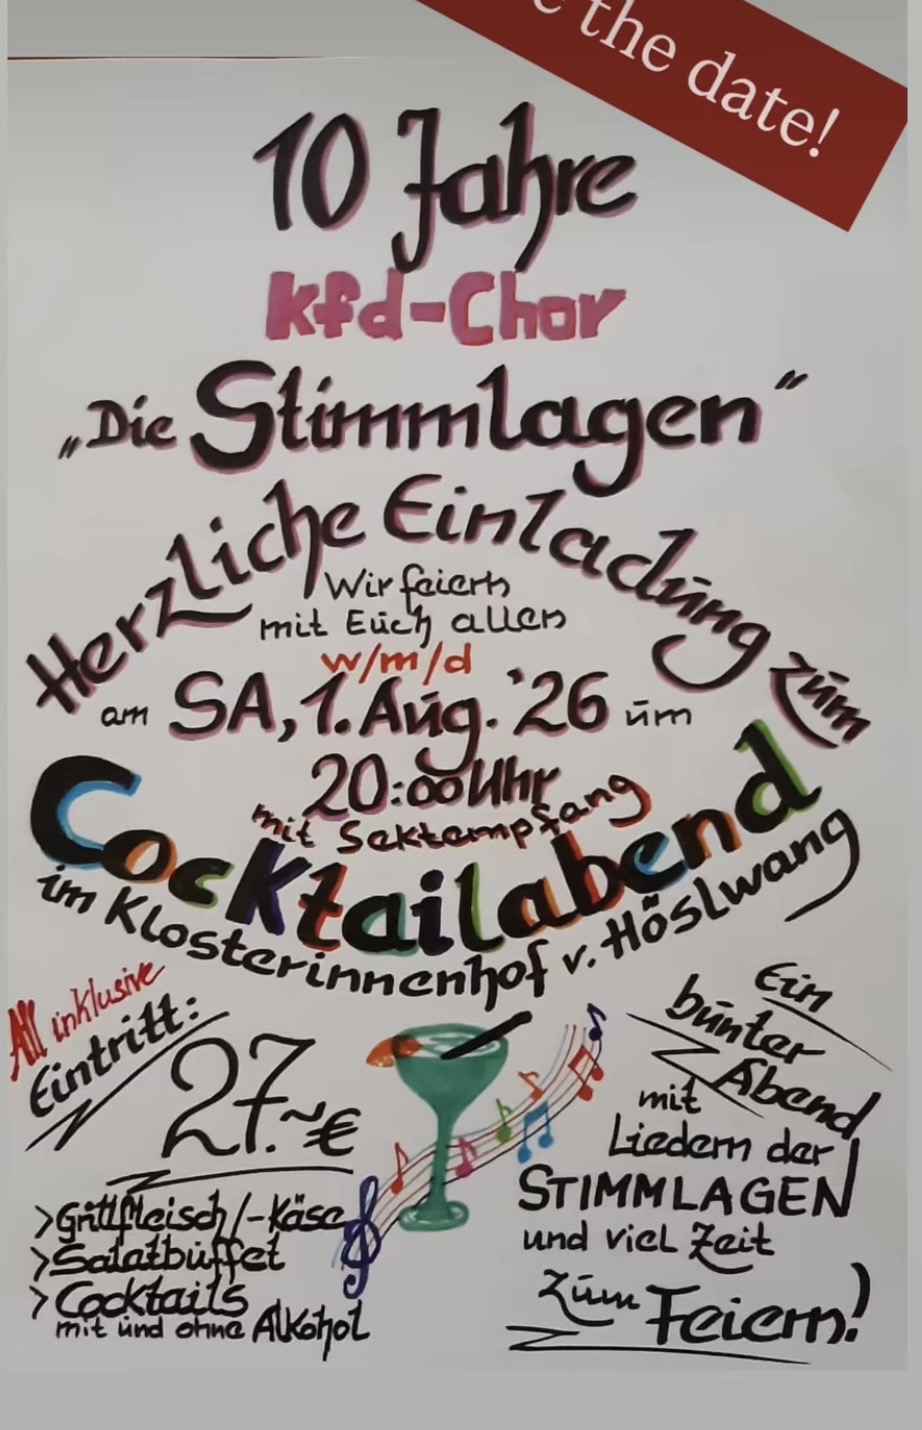 the date!
10 Jahre
kfd-Chor
„Die Stimmlagen“
Herzliche Einladung zum
Wir feiern
mit Euch allen
w/m/d
am SA, 1. Aug. '26 um
20:00 Uhr
mit Sektempfang
Cocktailabend
im Klosterinnenhof v. Höslwang
All inklusive
Eintritt:
27.~€
>Grillfleisch/-Käse
>Salatbuffet
>Cocktails
mit und ohne Alkohol
Ein
bunter
Abend
mit
Liedern der
STIMMLAGEN
und viel Zeit
zum Feiern!